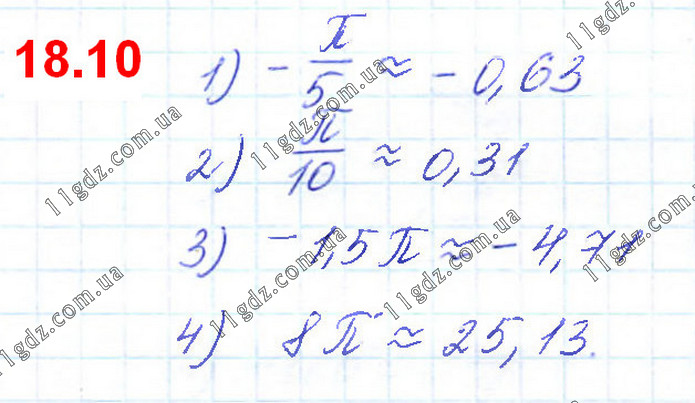 18.10
1) - π/5 ≈ - 0,63
2) π/10 ≈ 0,31
3) - 1,5π ≈ - 4,71
4) 8π ≈ 25,13.
11gdz.com.ua
11gdz.com.ua
11gdz.com.ua
11gdz.com.ua
11gdz.com.ua
11gdz.com.ua
11gdz.com.ua